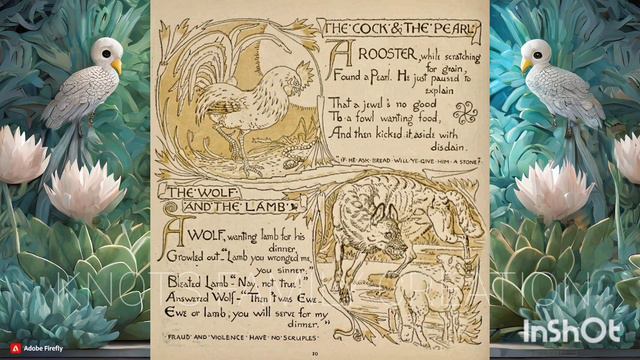 THE COCK & THE PEARL
A ROOSTER, while scratching
for grain,
Found a Pearl. He just paused to
explain
That a jewel's no good
To a fowl wanting food,
And then kicked it aside with
disdain.
"IF HE ASK BREAD WILL YE GIVE HIM A STONE?"
THE WOLF
AND THE LAMB
A WOLF, wanting lamb for his
dinner,
Growled out-"Lamb you wronged me,
you sinner."
Bleated Lamb-"Nay, not true!"
Answered Wolf-"Then 'twas Ewe-
Ewe or lamb, you will serve for my
dinner."
"FRAUD AND VIOLENCE HAVE NO SCRUPLES"
10
Adobe Firefly
InShOt